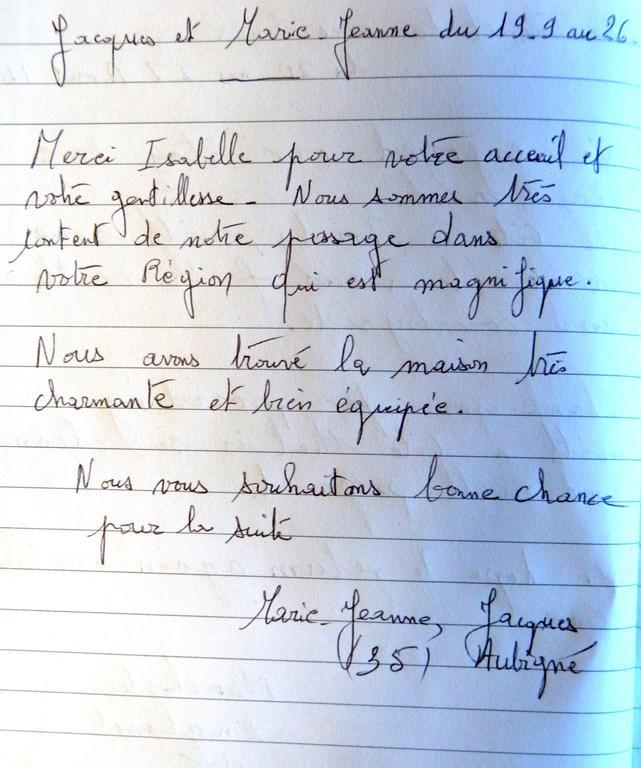 Jacques et Marie-Jeanne du 19-9 au 26
Merci Isabelle pour votre acceuil et
votre gentillesse - Nous sommes très
content de notre passage dans
votre Région qui est magnifique.
Nous avons trouvé la maison très
charmante et bien équipée.
Nous vous souhaitons bonne chance
pour la suite
Marie-Jeanne, Jacques
(35) Aubigné